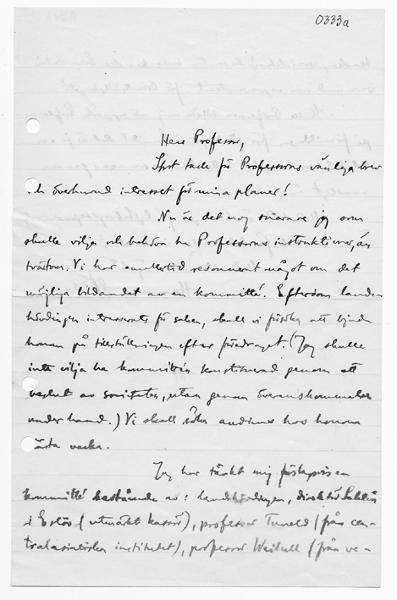 0333a
Herr Professor,
Stort tack för Professorns vänliga brev
och överhuvud intresset för mina planer!
Nu är det nog snarare jag som
skulle vilja och behöva ha Professorns instruktioner, än
tvärtom. Vi har emellertid resonerat något om det
möjliga bildandet av en kommitté. Eftersom lands-
hövdingen intresserats för saken, skall vi försöka att bjuda
honom på tillställningen efter föredraget. (Jag skulle
inte vilja ha kommittén konstituerad genom ett
beslut av societeten, utan genom överenskommelse
under hand.) Vi skall söka audiens hos honom
nästa vecka.
Jag har tänkt mig förslagsvis en
kommitté bestående av: landshövdingen, direktör Sahlin
i Eslöv (utmärkt kassör), professor Tuneld (från cen-
tralasiatiska institutet), professor Weibull (från ve-